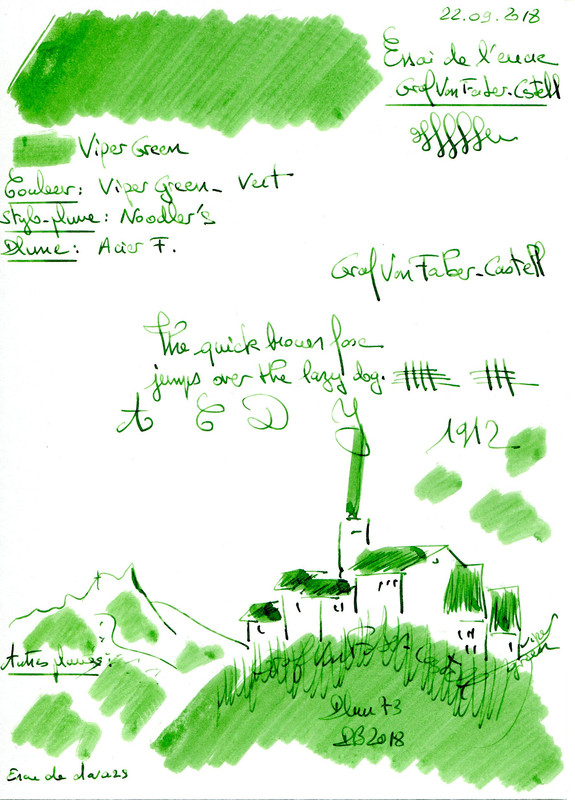 22.09.2018
Essai de l'encre
Graf Von Faber-Castell
Viper Green
Couleur: Viper Green - Vert
Stylo-plume: Noodler's
Plume: Acier F.
Graf Von Faber-Castell
The quick brown fox
jumps over the lazy dog.
A C D Y
1912
Autres plumes:
DB2018
Essai de